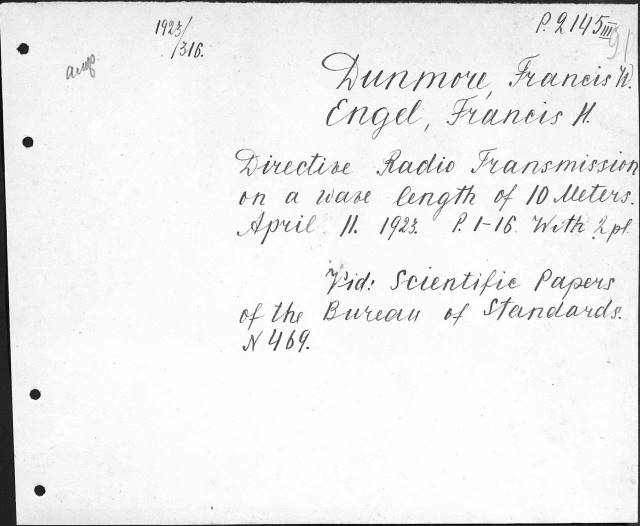 1923/
/316.
P. 2145 III
91
Dunmore, Francis W.
Engel, Francis H.
Directive Radio Transmission
on a wave length of 10 Meters.
April 11. 1923. P. 1-16. With 2 pl.
Vid: Scientific Papers
of the Bureau of Standards.
N 469.